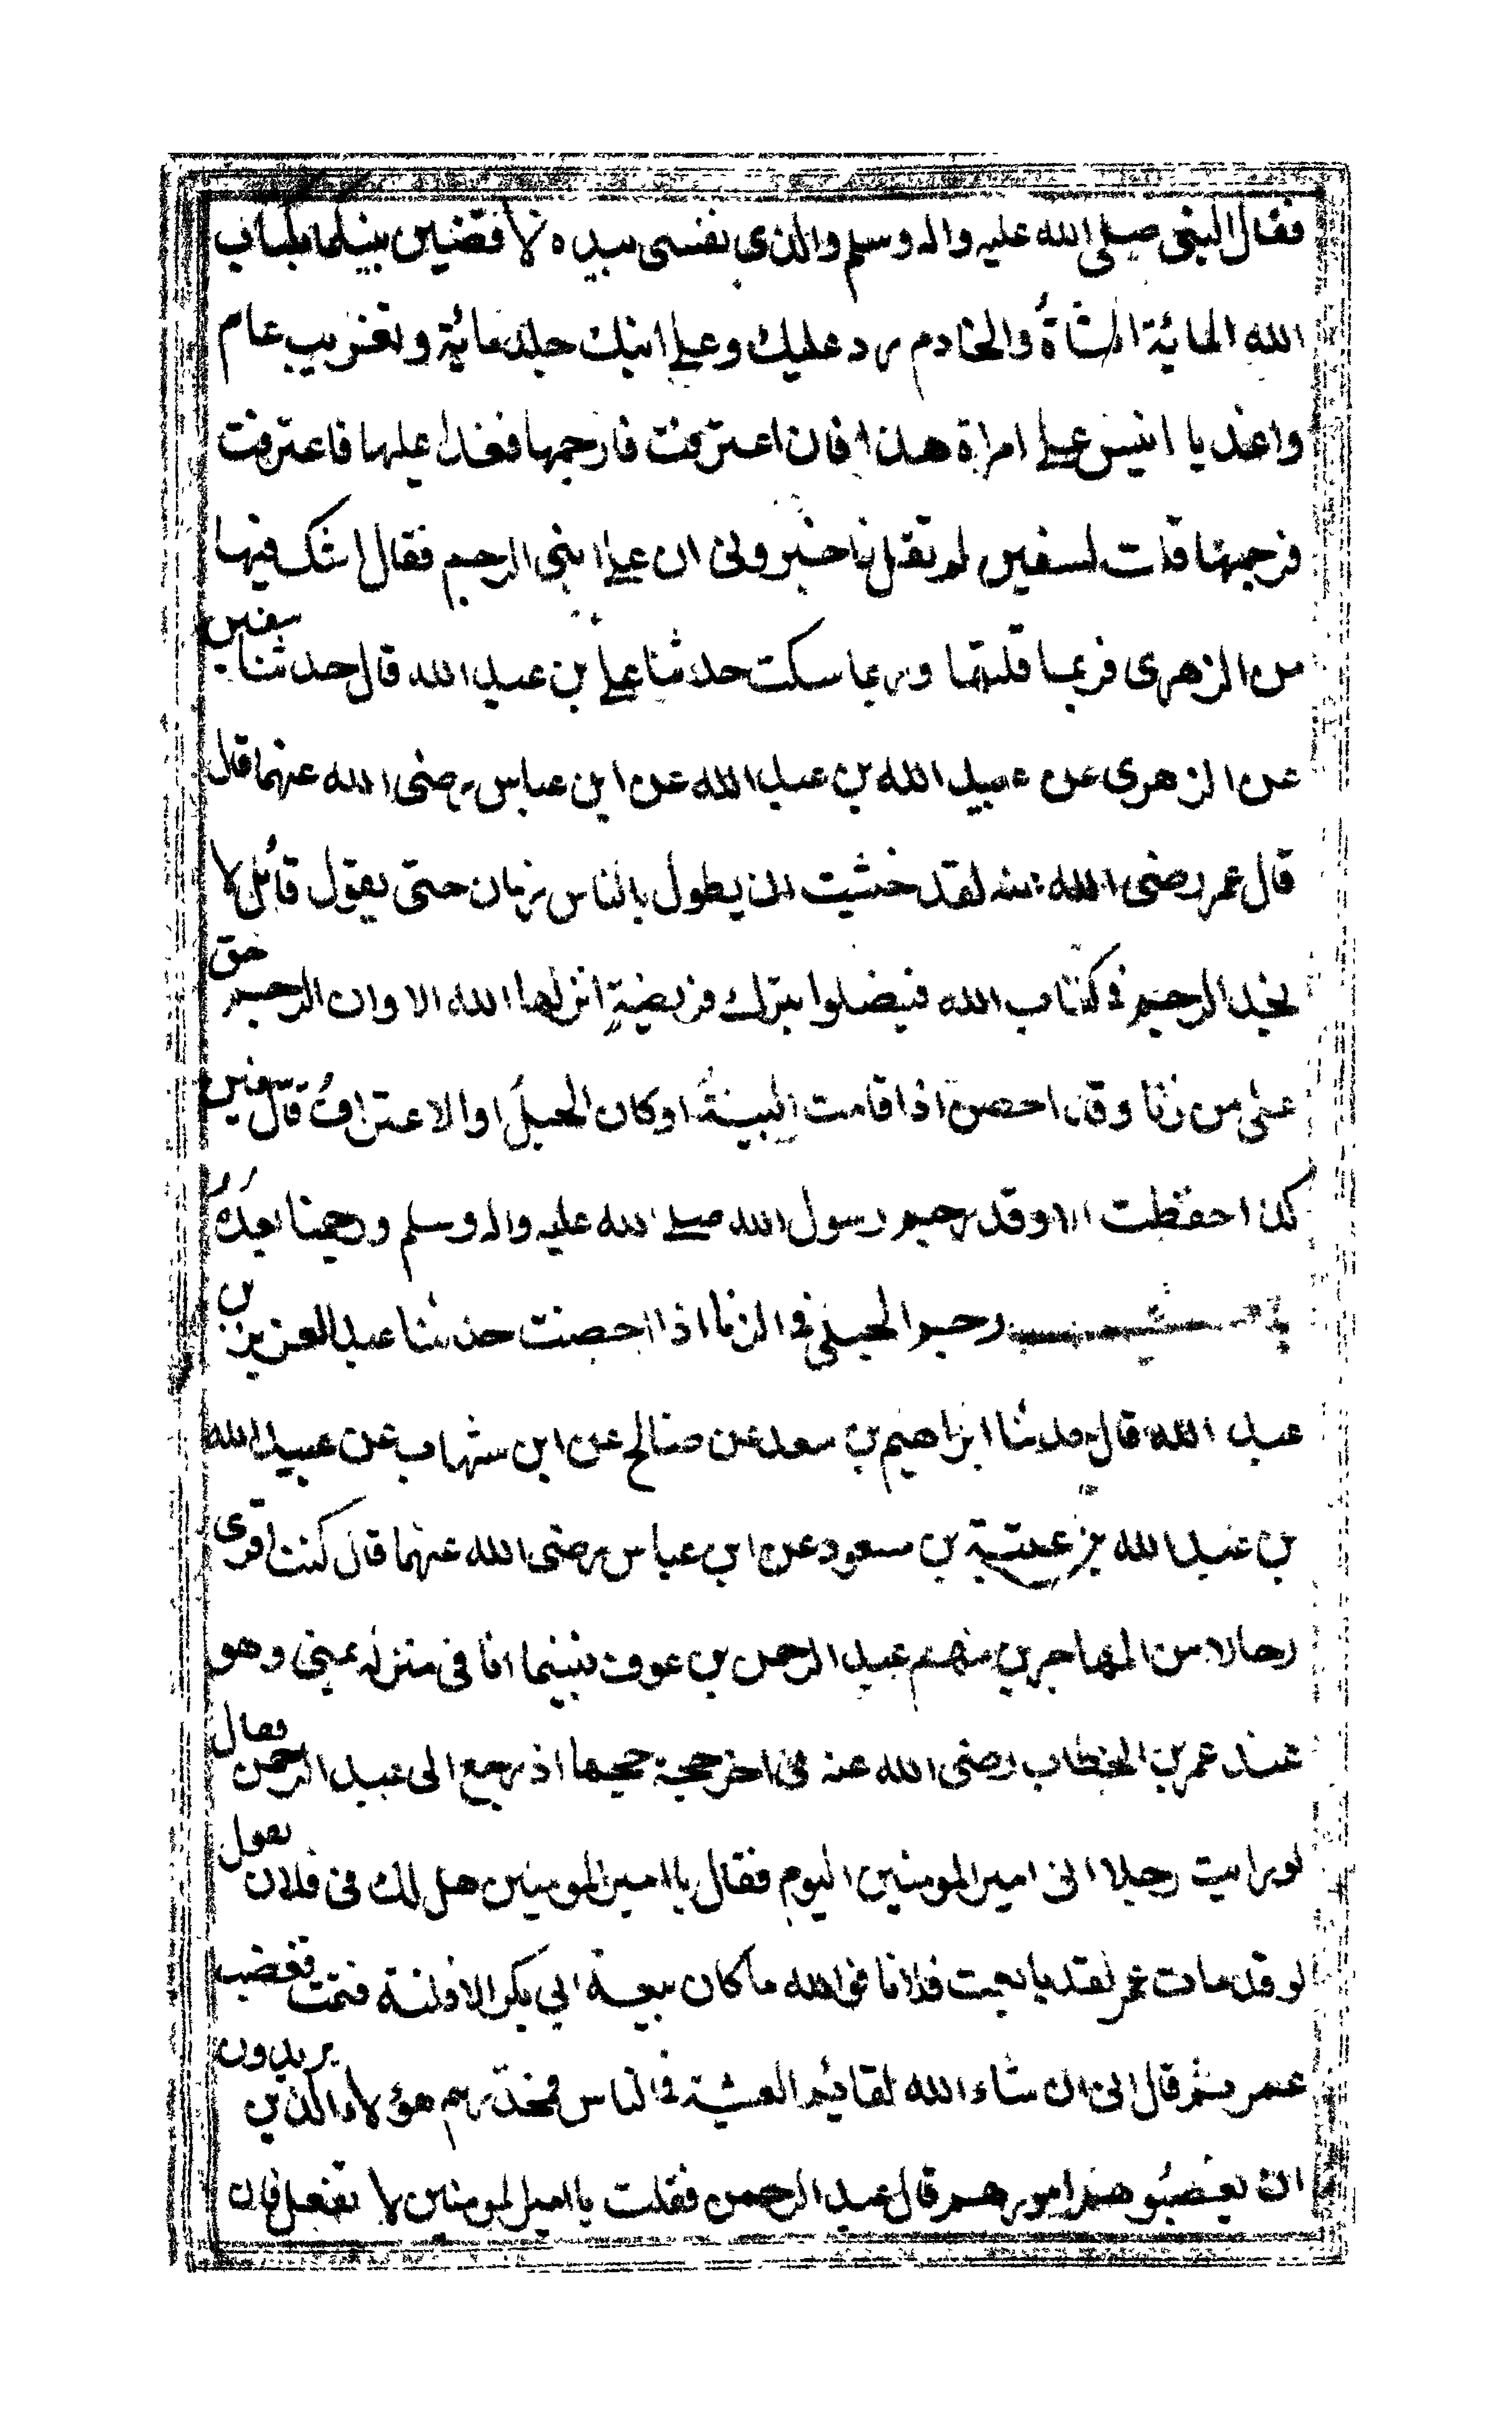 فقال النبى صلى الله عليه واله وسلم والذى نفسى بيده لأقضين بينكما بكتاب
الله المائة الشاةُ والخادم رد عليك وعلى ابنك جلد مائة وتغريب عام
واغد يا انيس على امراة هذا فان اعترفت فارجمها فغدا عليها فاعترفت
فرجمها قلت لسفين لم تقل فاخبرونى ان على ابنى الرجم فقال اشك فيها
من الزهرى فربما قلتها وربما سكت حدثنا على بن عبد الله قال حدثنا سفين
عن الزهرى عن عبيد الله بن عبد الله عن ابن عباس رضى الله عنهما قال
قال عمر رضى الله عنه لقد خشيت ان يطول بالناس زمان حتى يقول قائل لا
نجد الرجم فى كتاب الله فيضلوا بترك فريضةٍ انزلها الله الا وان الرجم حق
على من زنا وقد احصن اذا قامت البينةُ اوكان الحبلُ او الاعترافُ قال سفين
كذا حفظت الا وقد رجم رسول الله صلى الله عليه واله وسلم ورجمنا بعدَهُ
رجم الحبلى فى الزنا اذا احصنت حدثنا عبد العزيز بن
عبد الله قال حدثنا ابراهيم بن سعد عن صالح عن ابن شهاب عن عبيد الله
بن عبد الله بن عتبة بن مسعود عن ابن عباس رضى الله عنهما قال كنت اقرى
رجالا من المهاجرين منهم عبد الرحمن بن عوف فبينما انا فى منزله بمنى وهو
عند عمر بن الخطاب رضى الله عنه فى اخر حجة حجها اذ رجع الى عبد الرحمن فقال
لو رايت رجلا اتى امير المومنين اليوم فقال يا امير المومنين هل لك فى فلان يقول
لو قد مات عمر لقد بايعت فلانا فوالله ما كان بيعة ابي بكر الا فلتة فتمت فغضب
عمر ثم قال انى ان شاء الله لقائم العشية فى الناس فمحذرهم هؤلاء الذين يريدون
ان يغصبوهم امورهم قال عبد الرحمن فقلت يا امير المومنين لا تفعل فان